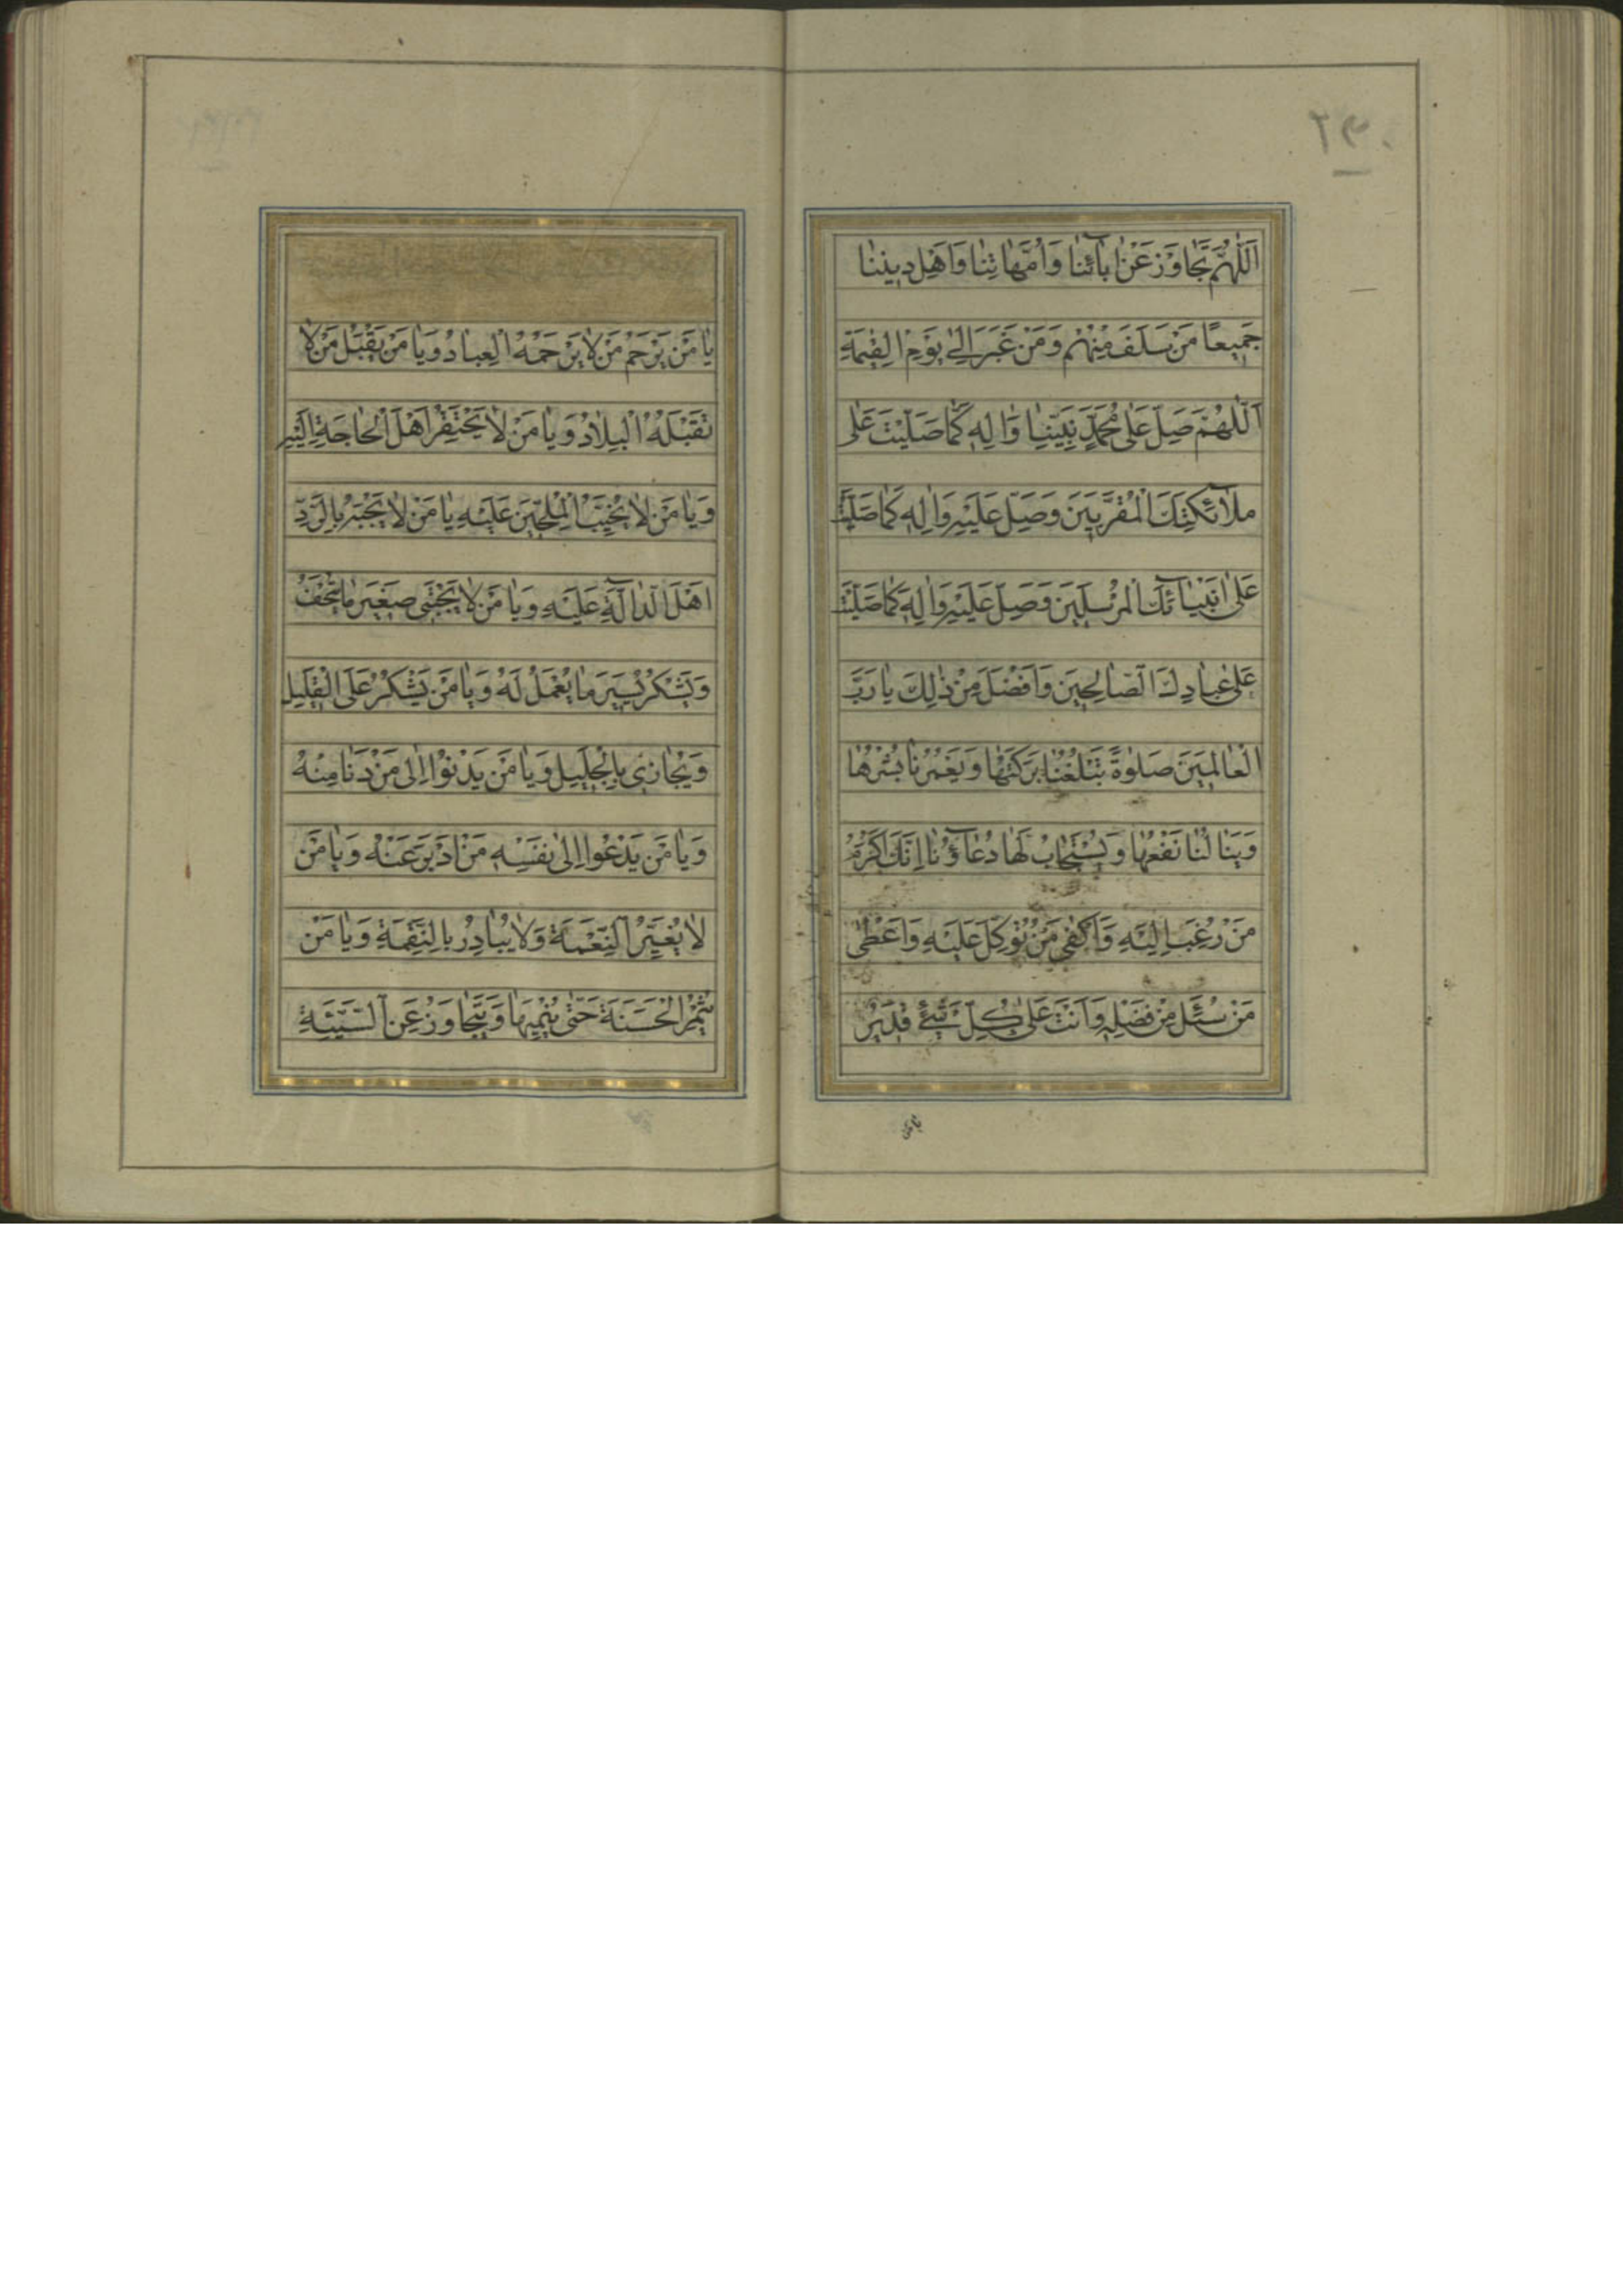 اَللّٰهُمَّ تَجاوَزْ عَنْ اٰبآئِنا وَاُمَّهاتِنا وَاَهْلِ دينِنا
جَميعًا مَنْ سَلَفَ مِنْهُمْ وَمَنْ غَبَرَ اِلىٰ يَوْمِ الْقِيٰمَةِ
اَللّٰهُمَّ صَلِّ عَلىٰ مُحَمَّدٍ نَبِيِّنا وَاٰلِهِ كَما صَلَّيْتَ عَلىٰ
ملآئِكَتِكَ الْمُقَرَّبينَ وَصَلِّ عَلَيْهِ وَاٰلِهِ كَما صَلَّيْتَ
عَلىٰ اَنْبِيآئِكَ الْمُرْسَلينَ وَصَلِّ عَلَيْهِ وَاٰلِهِ كَما صَلَّيْتَ
عَلىٰ عِبادِكَ الصّالِحينَ وَاَفْضَلَ مِنْ ذٰلِكَ يا رَبَّ
الْعالَمينَ صَلوٰةً تَبْلُغُنا بَرَكَتُها وَيَغْمُرُنا يُسْرُها
وَيَنالُنا نَفْعُها وَيُسْتَجابُ لَها دُعآؤُنا اِنَّكَ اَكْرَمُ
مَنْ رُغِبَ اِلَيْهِ وَاَكْفىٰ مَنْ تُوُكِّلَ عَلَيْهِ وَاَعْطىٰ
مَنْ سُئِلَ مِنْ فَضْلِهِ وَاَنْتَ عَلىٰ كُلِّ شَيْئٍ قَديرٌ
يا من
يا مَنْ يَرْحَمُ مَنْ لا يَرْحَمُهُ الْعِبادُ وَيا مَنْ يَقْبَلُ مَنْ لا
تَقْبَلُهُ الْبِلادُ وَيا مَنْ لا يَحْتَقِرُ اَهْلَ الْحاجَةِ اِلَيْهِ
وَيا مَنْ لا يُخَيِّبُ الْمُلِحّينَ عَلَيْهِ يا مَنْ لا يَجْبَهُ بِالرَّدِّ
اَهْلَ الدّالَّةِ عَلَيْهِ وَيا مَنْ لا يَجْتَبي صَغيرَ ما يُتْحَفُ
وَيَشْكُرُ يَسيرَ ما يُعْمَلُ لَهُ وَيا مَنْ يَشْكُرُ عَلَى الْقَليلِ
وَيُجازي بِالْجَليلِ وَيا مَنْ يَدْنُوا اِلىٰ مَنْ دَنا مِنْهُ
وَيا مَنْ يَدْعُوا اِلىٰ نَفْسِهِ مَنْ اَدْبَرَ عَنْهُ وَيا مَنْ
لا يُغَيِّرُ النِّعْمَةَ وَلا يُبادِرُ بِالنَّقِمَةِ وَيا مَنْ
يُثْمِرُ الْحَسَنَةَ حَتّىٰ يُنْمِيَها وَيَتَجاوَزُ عَنِ السَّيِّئَةِ